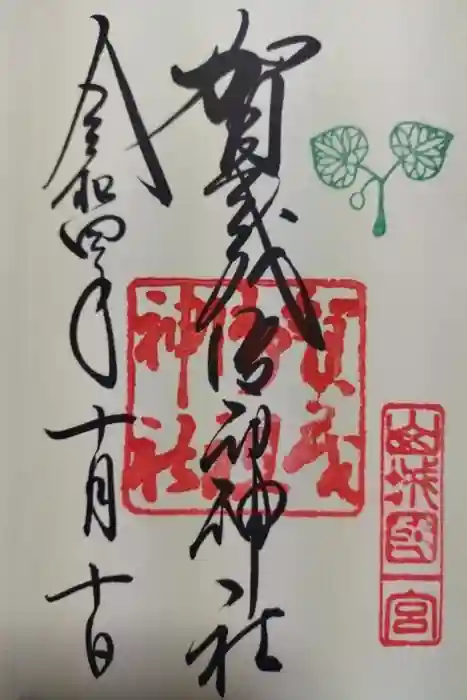 山城國一宮
賀茂御祖神社
賀茂御祖神社
令和四年十月十日